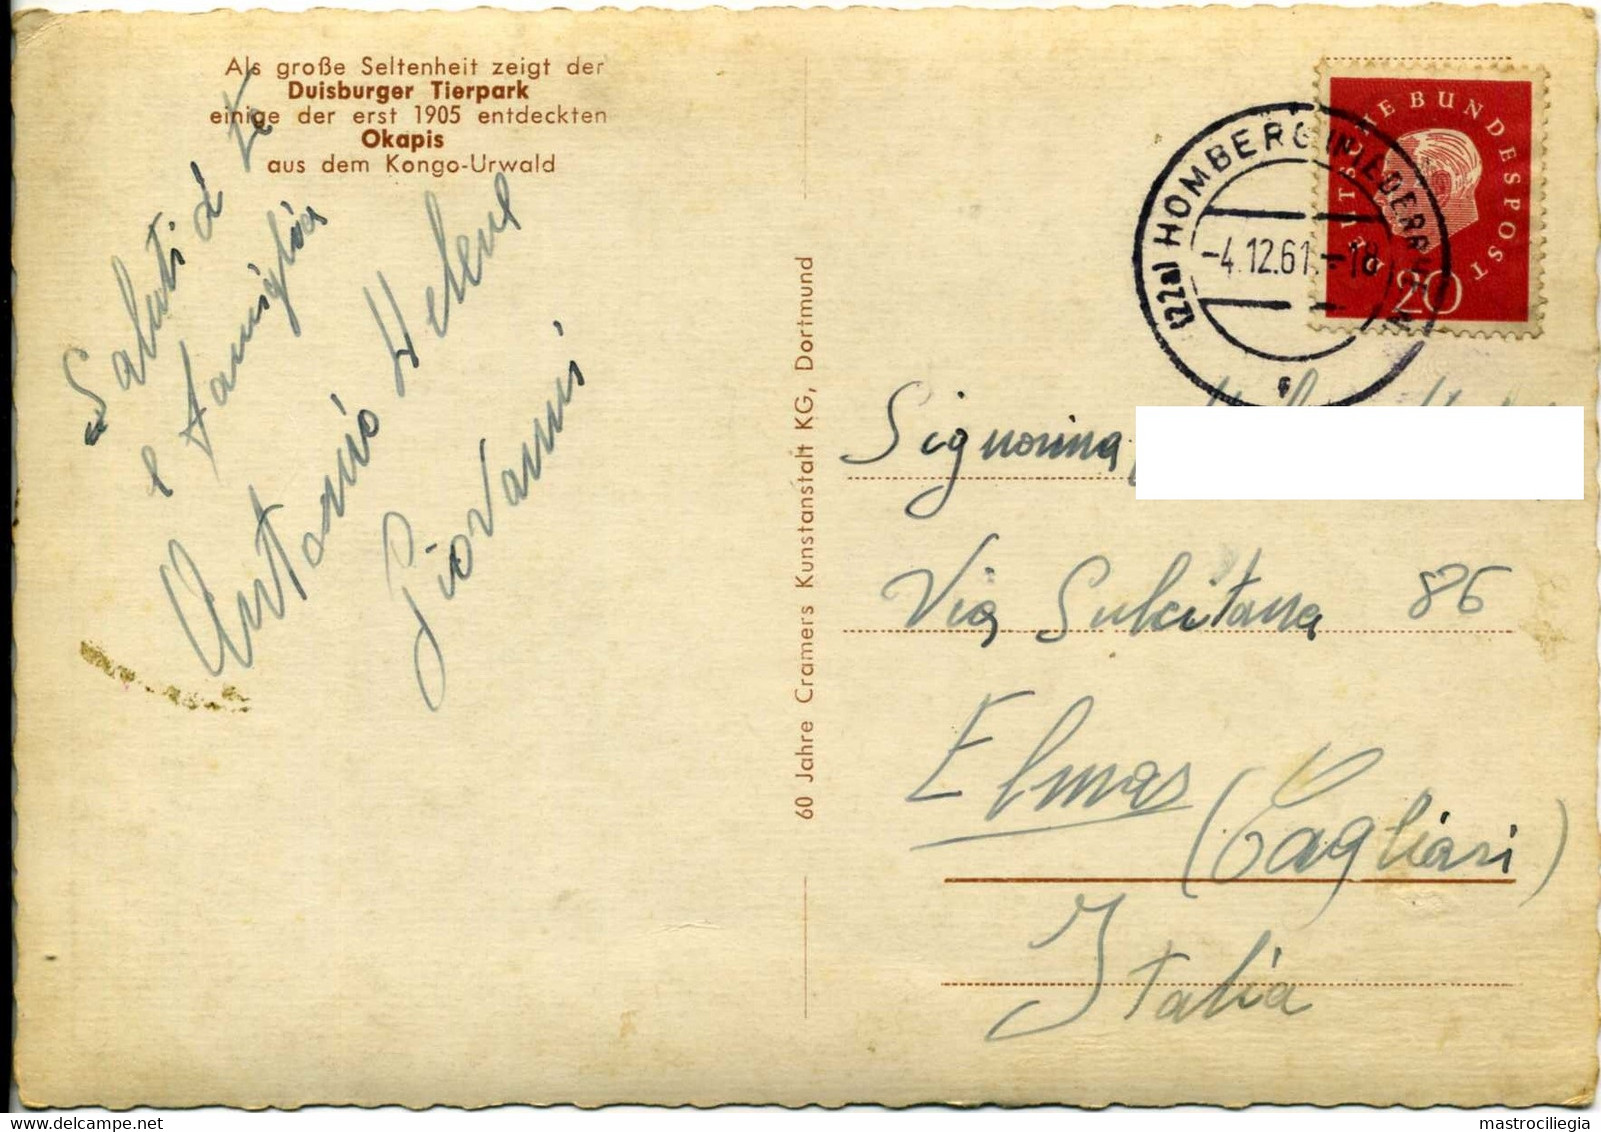 Als große Seltenheit zeigt der
Duisburger Tierpark
einige der erst 1905 entdeckten
Okapis
aus dem Kongo-Urwald
Saluti a te
e famiglia
Antonio Helene
Giovanni
60 Jahre Cramers Kunstanstalt KG, Dortmund
DEUTSCHE BUNDESPOST
20
(22a) HOMBERG (NIEDERRHEIN)
-4.12.61.-18
Signorina
Via Sulcitana 86
Elmas
(Cagliari)
Italia
delcampe.net
mastrociliegia